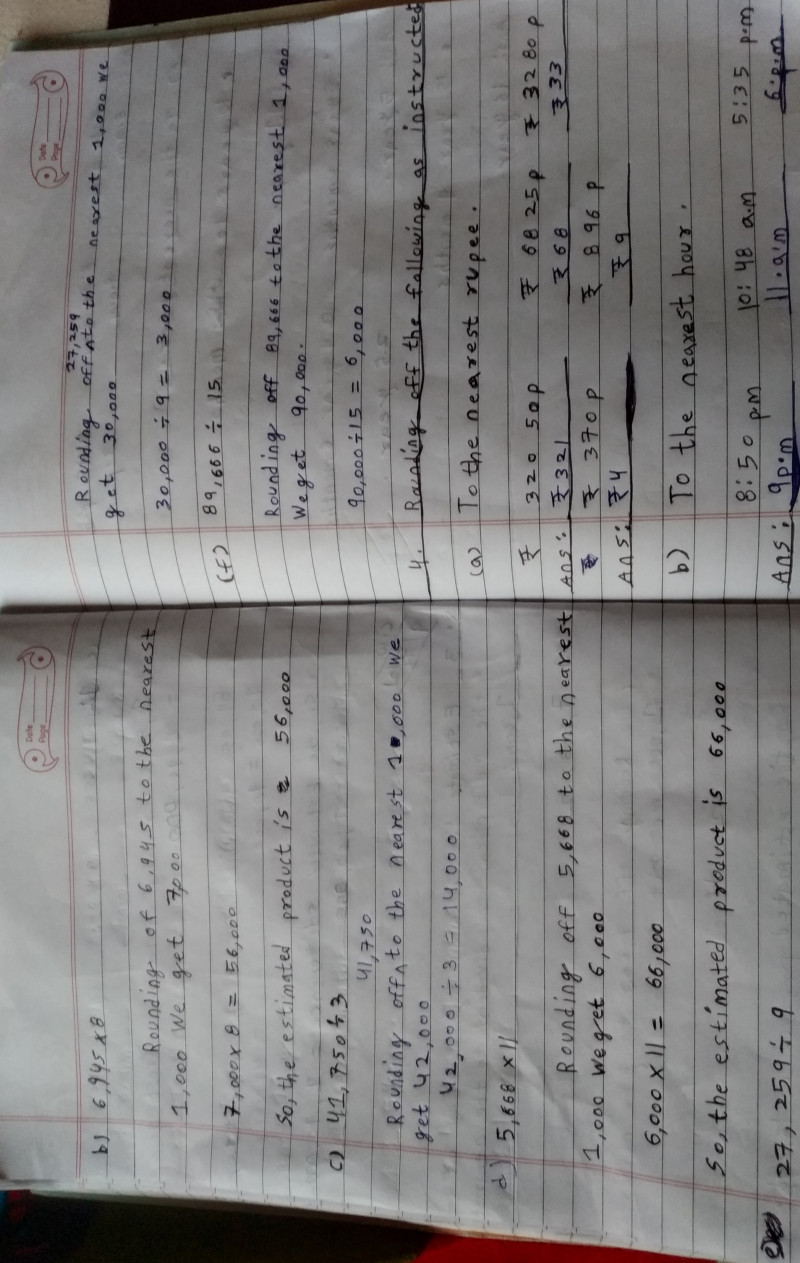 Date
Page
b) 6,945 x 8
Rounding of 6,945 to the nearest
1,000 We get 7,000
7,000 x 8 = 56,000
So, the estimated product is 56,000
c) 41,750 ÷ 3
41,750
Rounding off ^ to the nearest 1,000 we
get 42,000
42,000 ÷ 3 = 14,000
d) 5,668 x 11
Rounding off 5,668 to the nearest
1,000 we get 6,000
6,000 x 11 = 66,000
So, the estimated product is 66,000
27,259 ÷ 9
Date
Page
27,259
Rounding off ^ to the nearest 1,000 we
get 30,000
30,000 ÷ 9 = 3,000
(f) 89,666 ÷ 15
Rounding off 89,666 to the nearest 1,000
We get 90,000.
90,000 ÷ 15 = 6,000
4. Rounding off the following as instructed
(a) To the nearest rupee.
₹ 320 50p ₹ 68 25p ₹ 32 80 p
Ans: ₹321 ₹68 ₹33
₹ 370p ₹ 8 96 p
Ans: ₹4 ₹9
b) To the nearest hour.
8:50 pm 10:48 a.m 5:35 p.m
Ans: 9p.m 11.a.m 6.p.m